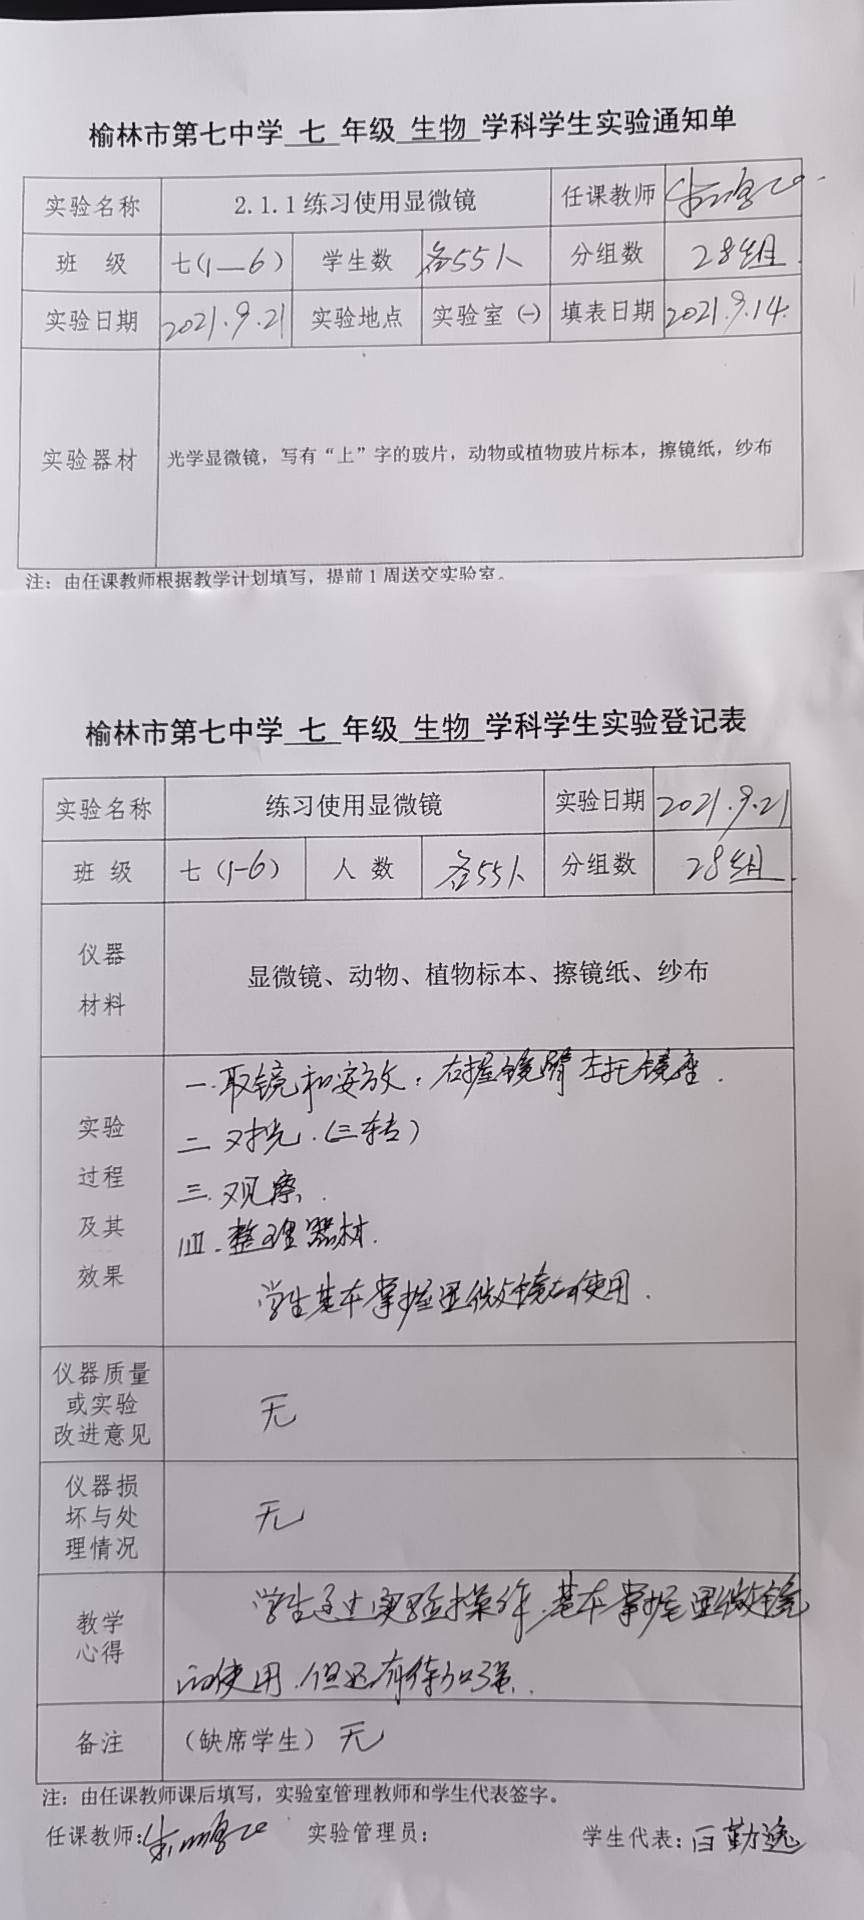 榆林市第七中学 七 年级 生物 学科学生实验通知单
实验名称 2.1.1练习使用显微镜 任课教师
班 级 七(1—6) 学生数 各55人 分组数 28组.
实验日期 2021.9.21 实验地点 实验室(一) 填表日期 2021.9.14.
实验器材 光学显微镜，写有“上”字的玻片，动物或植物玻片标本，擦镜纸，纱布
注：由任课教师根据教学计划填写，提前1周送交实验室。
榆林市第七中学 七 年级 生物 学科学生实验登记表
实验名称 练习使用显微镜 实验日期 2021.9.21
班 级 七(1-6) 人 数 各55人 分组数 28组.
仪器
材料
显微镜、动物、植物标本、擦镜纸、纱布
实验
过程
及其
效果
一.取镜和安放：右握镜臂左托镜座.
二 对光.(三转)
三.观察.
四.整理器材.
学生基本掌握显微镜的使用.
仪器质量
或实验
改进意见
无
仪器损
坏与处
理情况
无
教学
心得
学生通过实验操作,基本掌握显微镜
的使用.但还有待加强.
备注 （缺席学生）无
注：由任课教师课后填写，实验室管理教师和学生代表签字。
任课教师: 实验管理员: 学生代表: 白勤逸